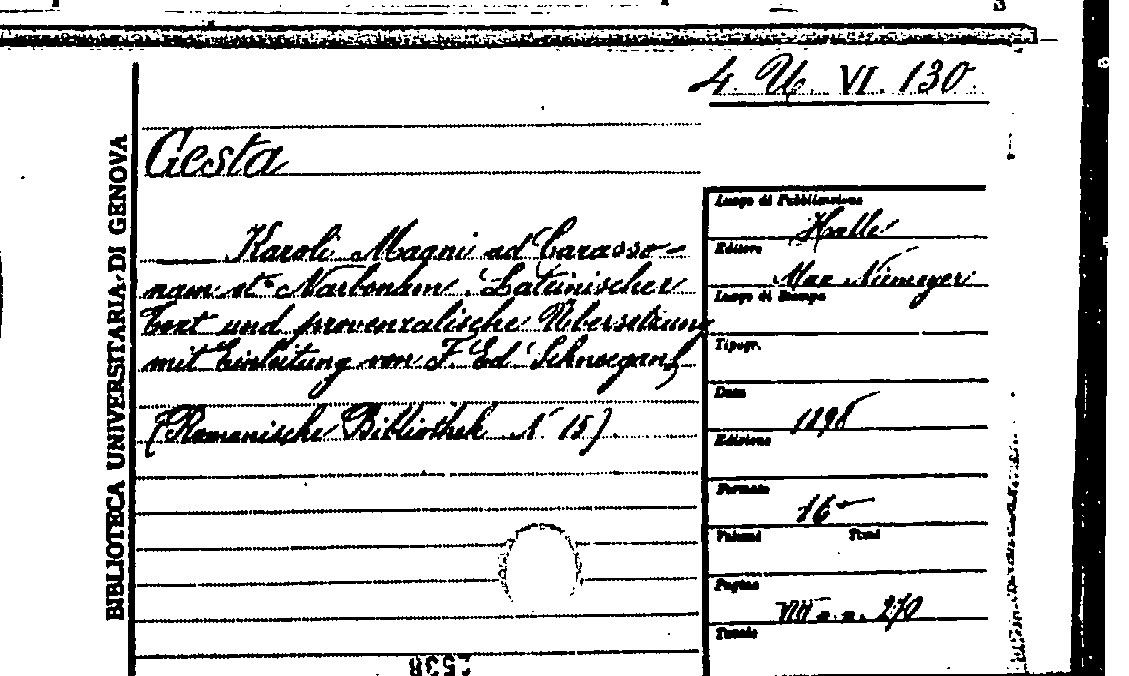 4. U. VI. 130.
BIBLIOTECA UNIVERSITARIA DI GENOVA
Gesta
Karoli Magni ad Carasso-
nam et Narbonam. Lateinischer
Text und provenzalische Übersetzung
mit Einleitung von F. Ed. Schneegans,
(Romanische Bibliothek N. 15).
Luogo di Pubblicazione
Halle
Editore
Max Niemeyer
Luogo di Stampa
Tipogr.
Data
1898
Edizione
Formato
16°
Volumi Tomi
Pagine
270
Tavole